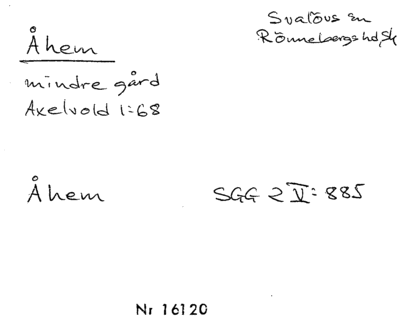 Åhem
Svalövs sn
Rönnebergs hd, Sk
mindre gård
Axelvold 1:68
Åhem SGG 2 V: 885
Nr 16120